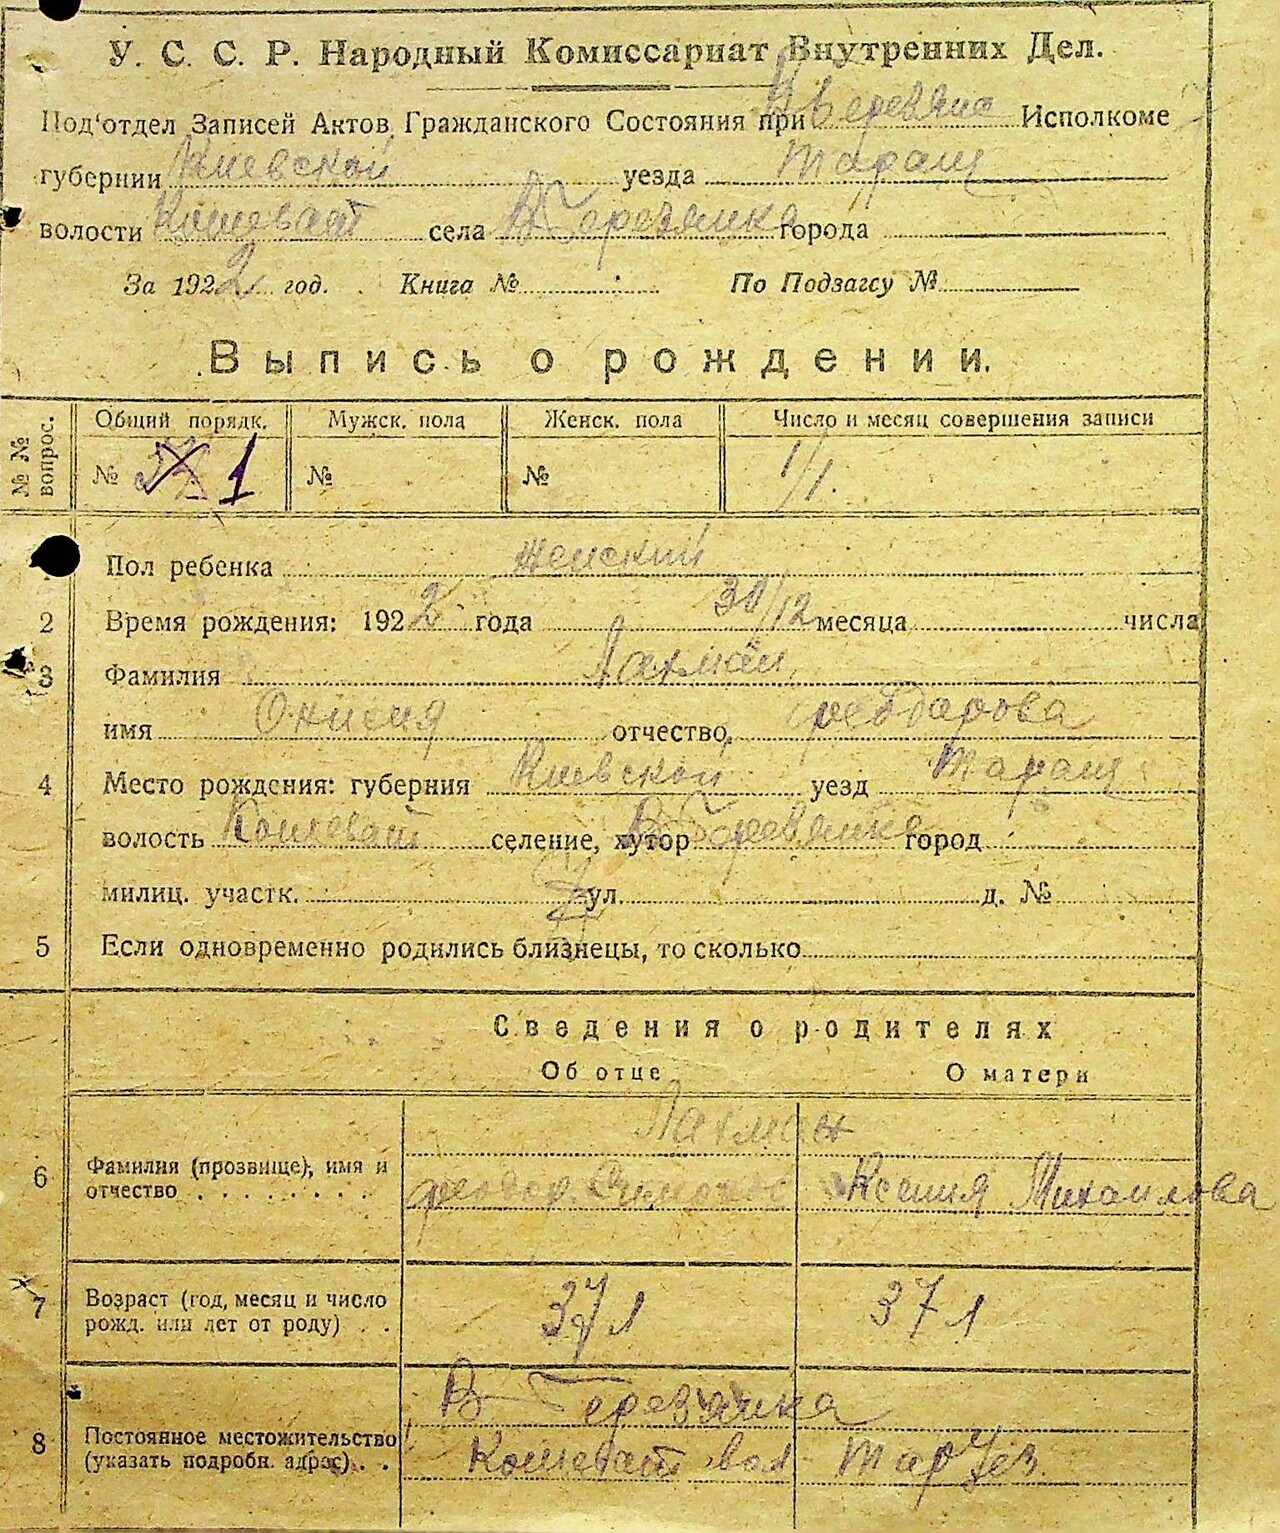 У. С. С. Р. Народный Комиссариат Внутренних Дел.
Под'отдел Записей Актов Гражданского Состояния при В Березянс Исполкоме
губернии Киевской уезда Таращ
волости Кошеват села В Березянка города
За 1922 год. Книга № По Подзагсу №
Выпись о рождении.
№ № вопрос. Общий порядк. Мужск. пола Женск. пола Число и месяц совершения записи
№ 1 № № 1/1.
Пол ребенка женский
2 Время рождения: 1922 года 30/12 месяца числа
3 Фамилия Лахман
имя Онисия отчество Феодорова
4 Место рождения: губерния Киевской уезд Таращ
волость Кошеват селение, хутор В Березянка город
милиц. участк. ул. д. №
5 Если одновременно родились близнецы, то сколько
Сведения о родителях
Об отце О матери
Лахман
6 Фамилия (прозвище), имя и отчество Феодор Ксения Михаилова
7 Возраст (год, месяц и число рожд. или лет от роду) 37 л 37 л
В Березянка
8 Постоянное местожительство (указать подробн. адрес) Кошеват вол Тар уез